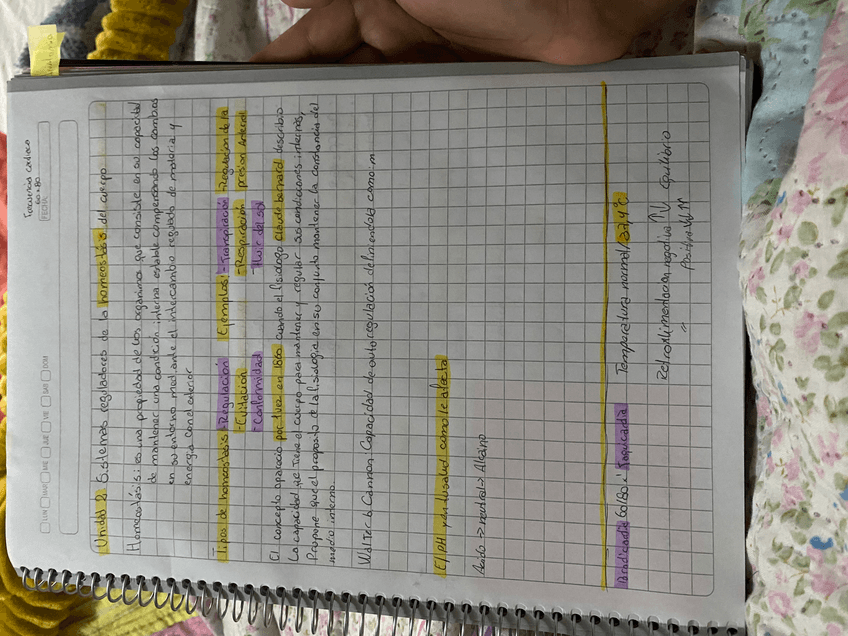 Frecuencia Cardiaca
60 x 80
FECHA
LUN MAR MIE JUE VIE SAB DOM
Unidad 2. Sistemas reguladores de la homeostásis del cuerpo.
Homeostásis: es una propiedad de los organismos que consiste en su capacidad
de mantener una condición interna estable compensando los cambios
en su entorno mediante el intercambio regulado de materia y
energía con el exterior
Tipos de homeostásis - Regulación Ejemplos: - Transpiración - Regulación de la
- Evitación - Respiración presión Arterial
- Conformidad - Huir del sol
El concepto apareció por 1 vez en 1860 cuando el fisiólogo Claude bernard describió
La capacidad que tiene el cuerpo para mantener y regular sus condiciones internas,
Propone que el proposito de la fisiología en su conjunto mantener la constancia del
medio interno.
Walter b Cannon: Capacidad de autoregulación definiendola como: m
El pH y en tu salud como le afecta
Acido -> neutral -> Alcalino
Bradicardia 60/80 Taquicardia Temperatura normal/ 37,4°C
Retroalimentación negativa ↑↓ Equilibrio
" Positiva ↓↓ ↑↑